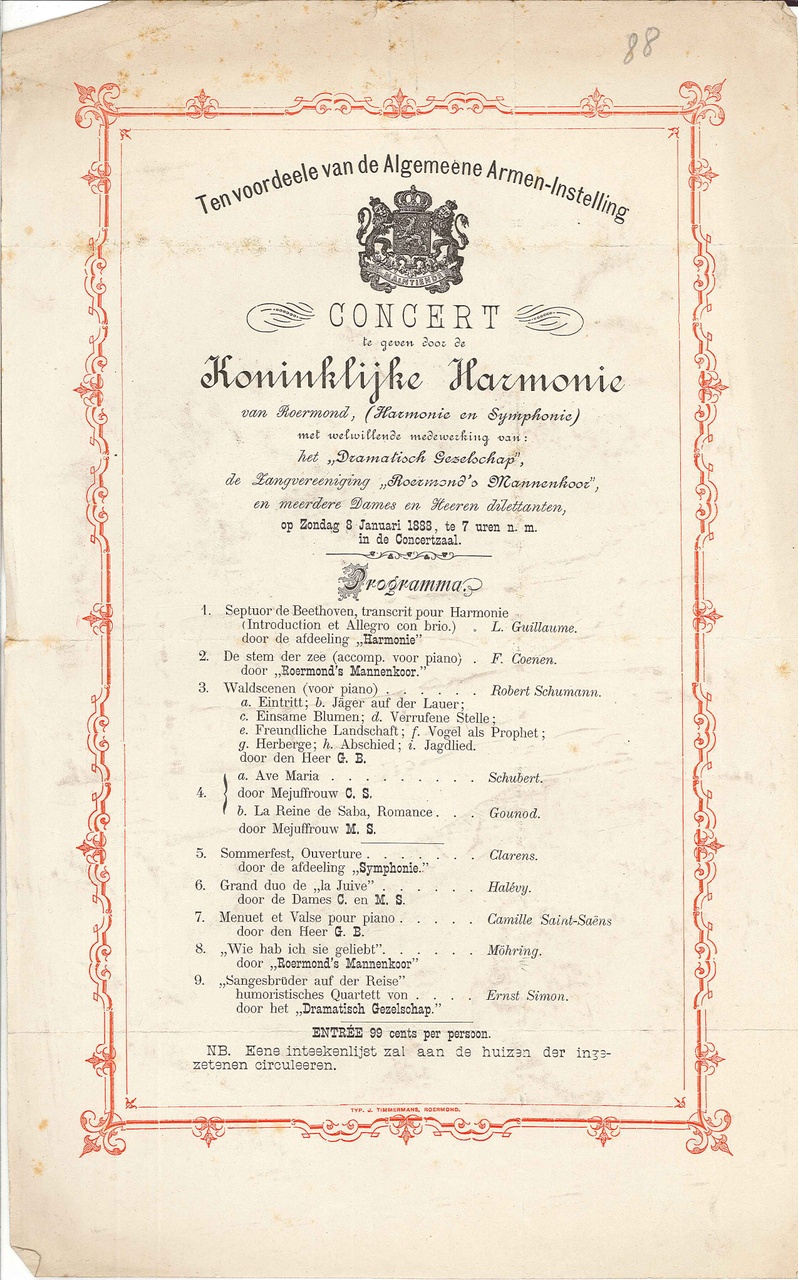 88
Ten voordeele van de Algemeene Armen-Instelling
CONCERT
te geven door de
Koninklijke Harmonie
van Roermond, (Harmonie en Symphonie)
met welwillende medewerking van:
het „Dramatisch Gezelschap”,
de Zangvereeniging „Roermond's Mannenkoor”,
en meerdere Dames en Heeren dilettanten,
op Zondag 8 Januari 1888, te 7 uren n. m.
in de Concertzaal.
Programma
1. Septuor de Beethoven, transcrit pour Harmonie
(Introduction et Allegro con brio.) . L. Guillaume.
door de afdeeling „Harmonie”
2. De stem der zee (accomp. voor piano) . F. Coenen.
door „Roermond's Mannenkoor.”
3. Waldscenen (voor piano) . . . . . . Robert Schumann.
a. Eintritt; b. Jäger auf der Lauer;
c. Einsame Blumen; d. Verrufene Stelle;
e. Freundliche Landschaft; f. Vogel als Prophet;
g. Herberge; h. Abschied; i. Jagdlied.
door den Heer G. B.
a. Ave Maria . . . . . . . . . Schubert.
4. door Mejuffrouw C. S.
b. La Reine de Saba, Romance . . . Gounod.
door Mejuffrouw M. S.
5. Sommerfest, Ouverture . . . . . . . Clarens.
door de afdeeling „Symphonie.”
6. Grand duo de „la Juive” . . . . . . Halévy.
door de Dames C. en M. S.
7. Menuet et Valse pour piano . . . . . Camille Saint-Saëns
door den Heer G. B.
8. „Wie hab ich sie geliebt” . . . . . . Möhring.
door „Roermond's Mannenkoor”
9. „Sangesbrüder auf der Reise”
humoristisches Quartett von . . . . Ernst Simon.
door het „Dramatisch Gezelschap.”
ENTRÉE 99 cents per persoon.
NB. Eene inteekenlijst zal aan de huizen der inge-
zetenen circuleeren.
TYP. J. TIMMERMANS, ROERMOND.